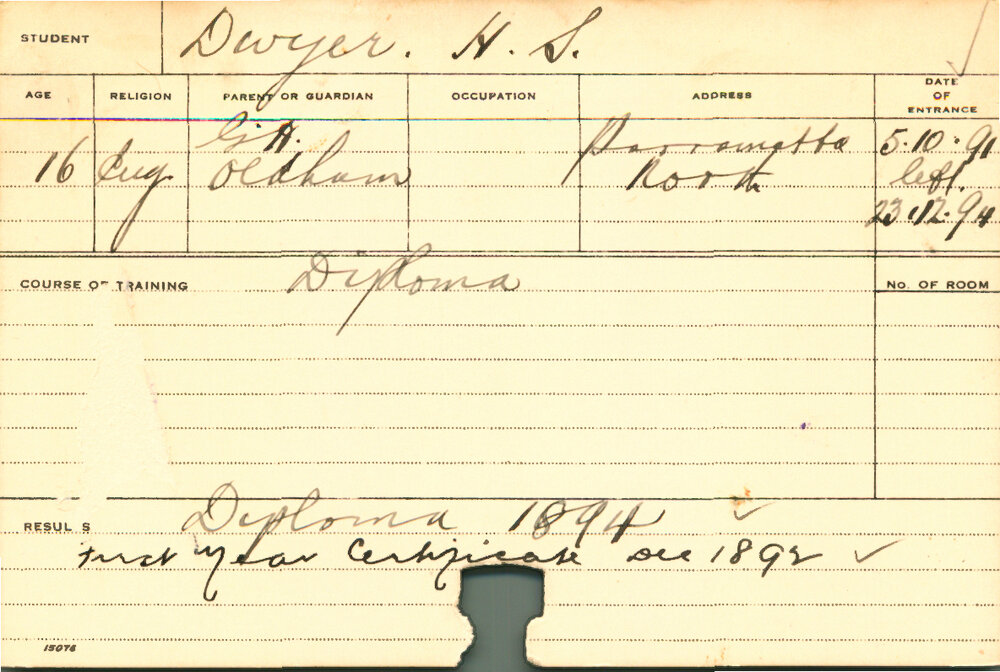 STUDENT Dwyer. H. S.
AGE RELIGION PARENT OR GUARDIAN OCCUPATION ADDRESS DATE OF ENTRANCE
G. H. Parramatta 5.10.91
16 Eng. Oldham North left.
23.12.94
COURSE OF TRAINING Diploma No. OF ROOM
RESUL S Diploma 1894 ✓
First Year Certificate Dec 1892 ✓
15076